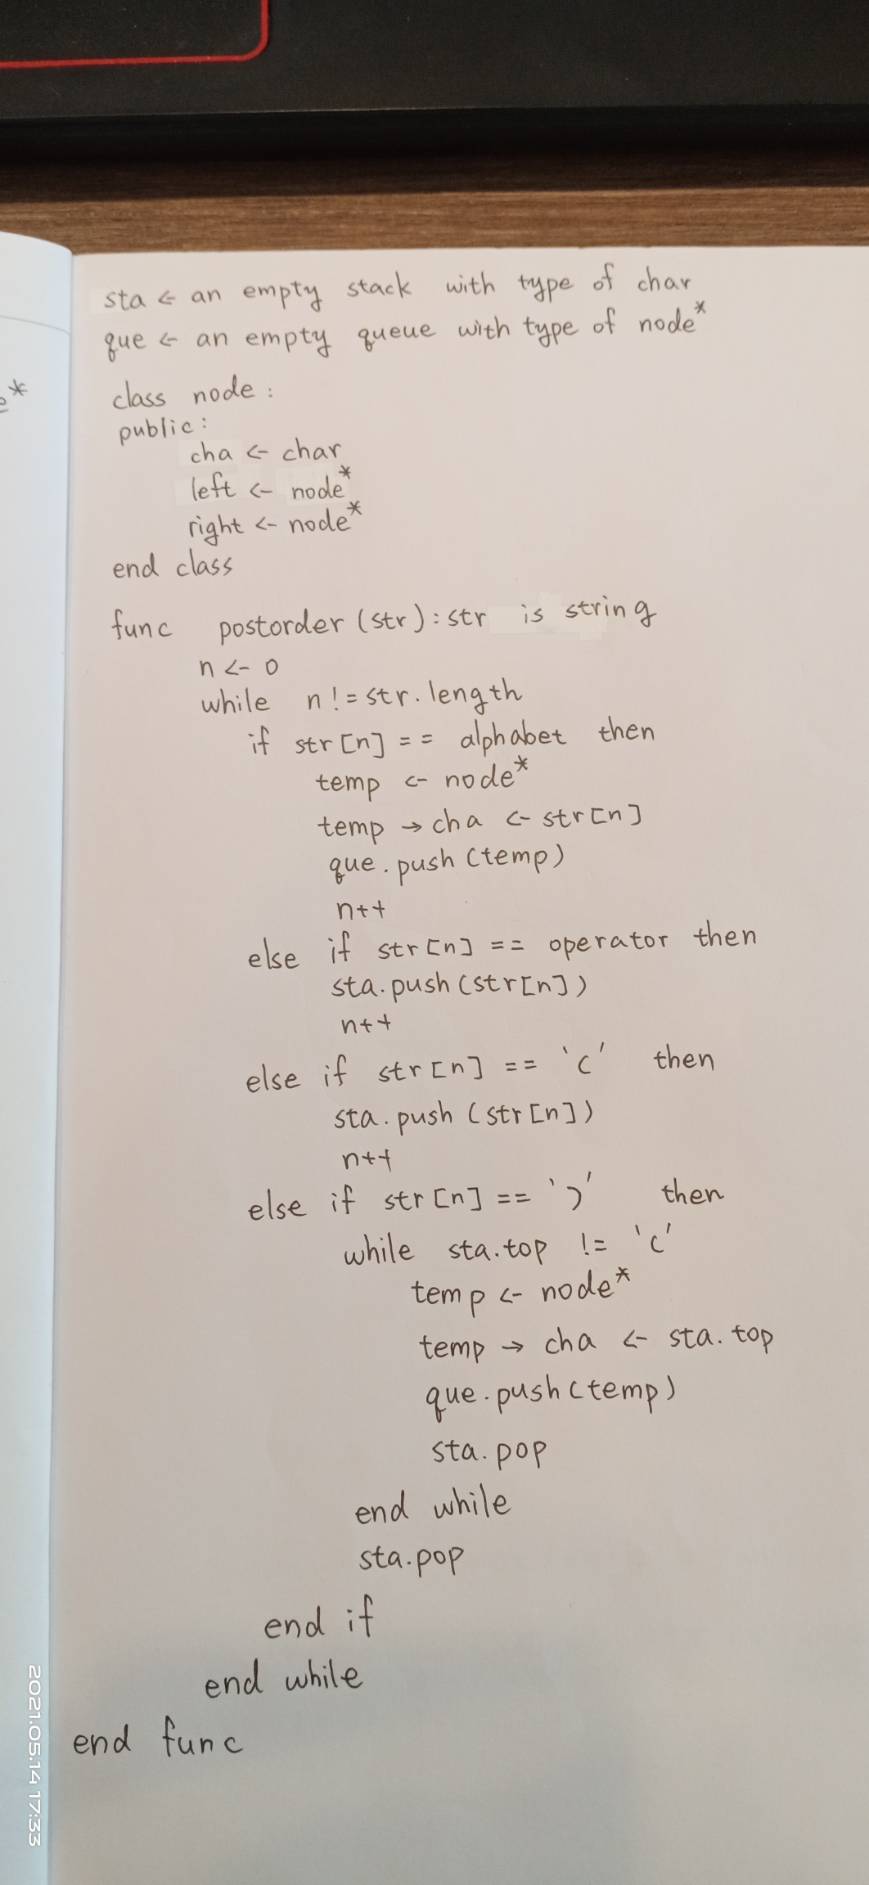 sta ← an empty stack with type of char
que ← an empty queue with type of node*
class node :
public :
cha ← char
left ← node*
right ← node*
end class
func postorder (str) : str is string
n ← 0
while n != str.length
if str[n] == alphabet then
temp ← node*
temp → cha ← str[n]
que.push(temp)
n++
else if str[n] == operator then
sta.push(str[n])
n++
else if str[n] == '(' then
sta.push(str[n])
n++
else if str[n] == ')' then
while sta.top != '('
temp ← node*
temp → cha ← sta.top
que.push(temp)
sta.pop
end while
sta.pop
end if
end while
end func
2021.05.14 17:33